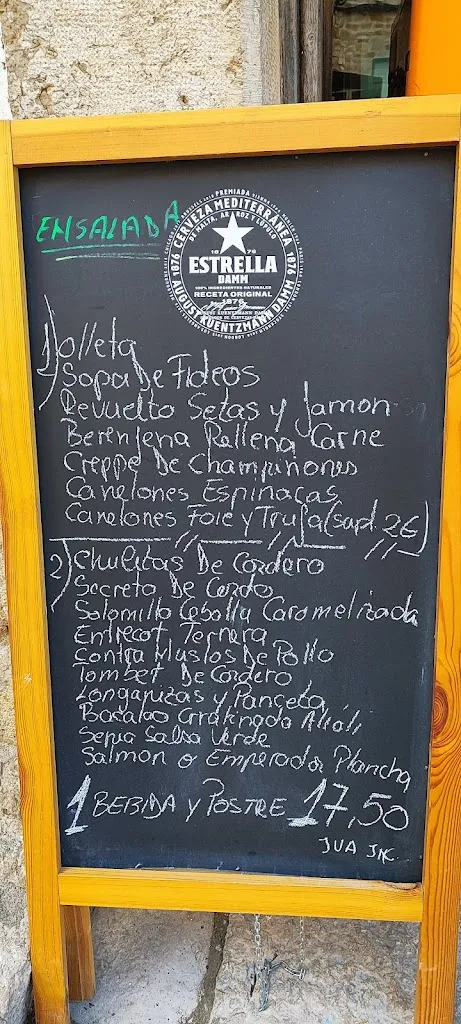 ENSALADA
PREMIADA
CERVEZA MEDITERRÁNEA
DE MALTA, ARROZ Y LÚPULO
1876
1876
1876
ESTRELLA
DAMM
100% INGREDIENTES NATURALES
RECETA ORIGINAL
1876
AUGUST KUENTZMANN DAMM
1) Olleta
Sopa De Fideos
Revuelto Setas y Jamon
Berenjena Rellena Carne
Creppe De Champiñones
Canelones Espinacas
Canelones Foie y Trufa (supl. 2€)
2) Chulitas De Cordero
Secreto De Cerdo
Solomillo Cebolla Caramelizada
Entrecot Ternera
Contra Muslos De Pollo
Tombet De Cordero
Longanizas y Panceta
Bacalao Gratinado Alioli
Sepia Salsa Verde
Salmon o Emperador Plancha
1 BEBIDA Y POSTRE 17,50
IVA INC.